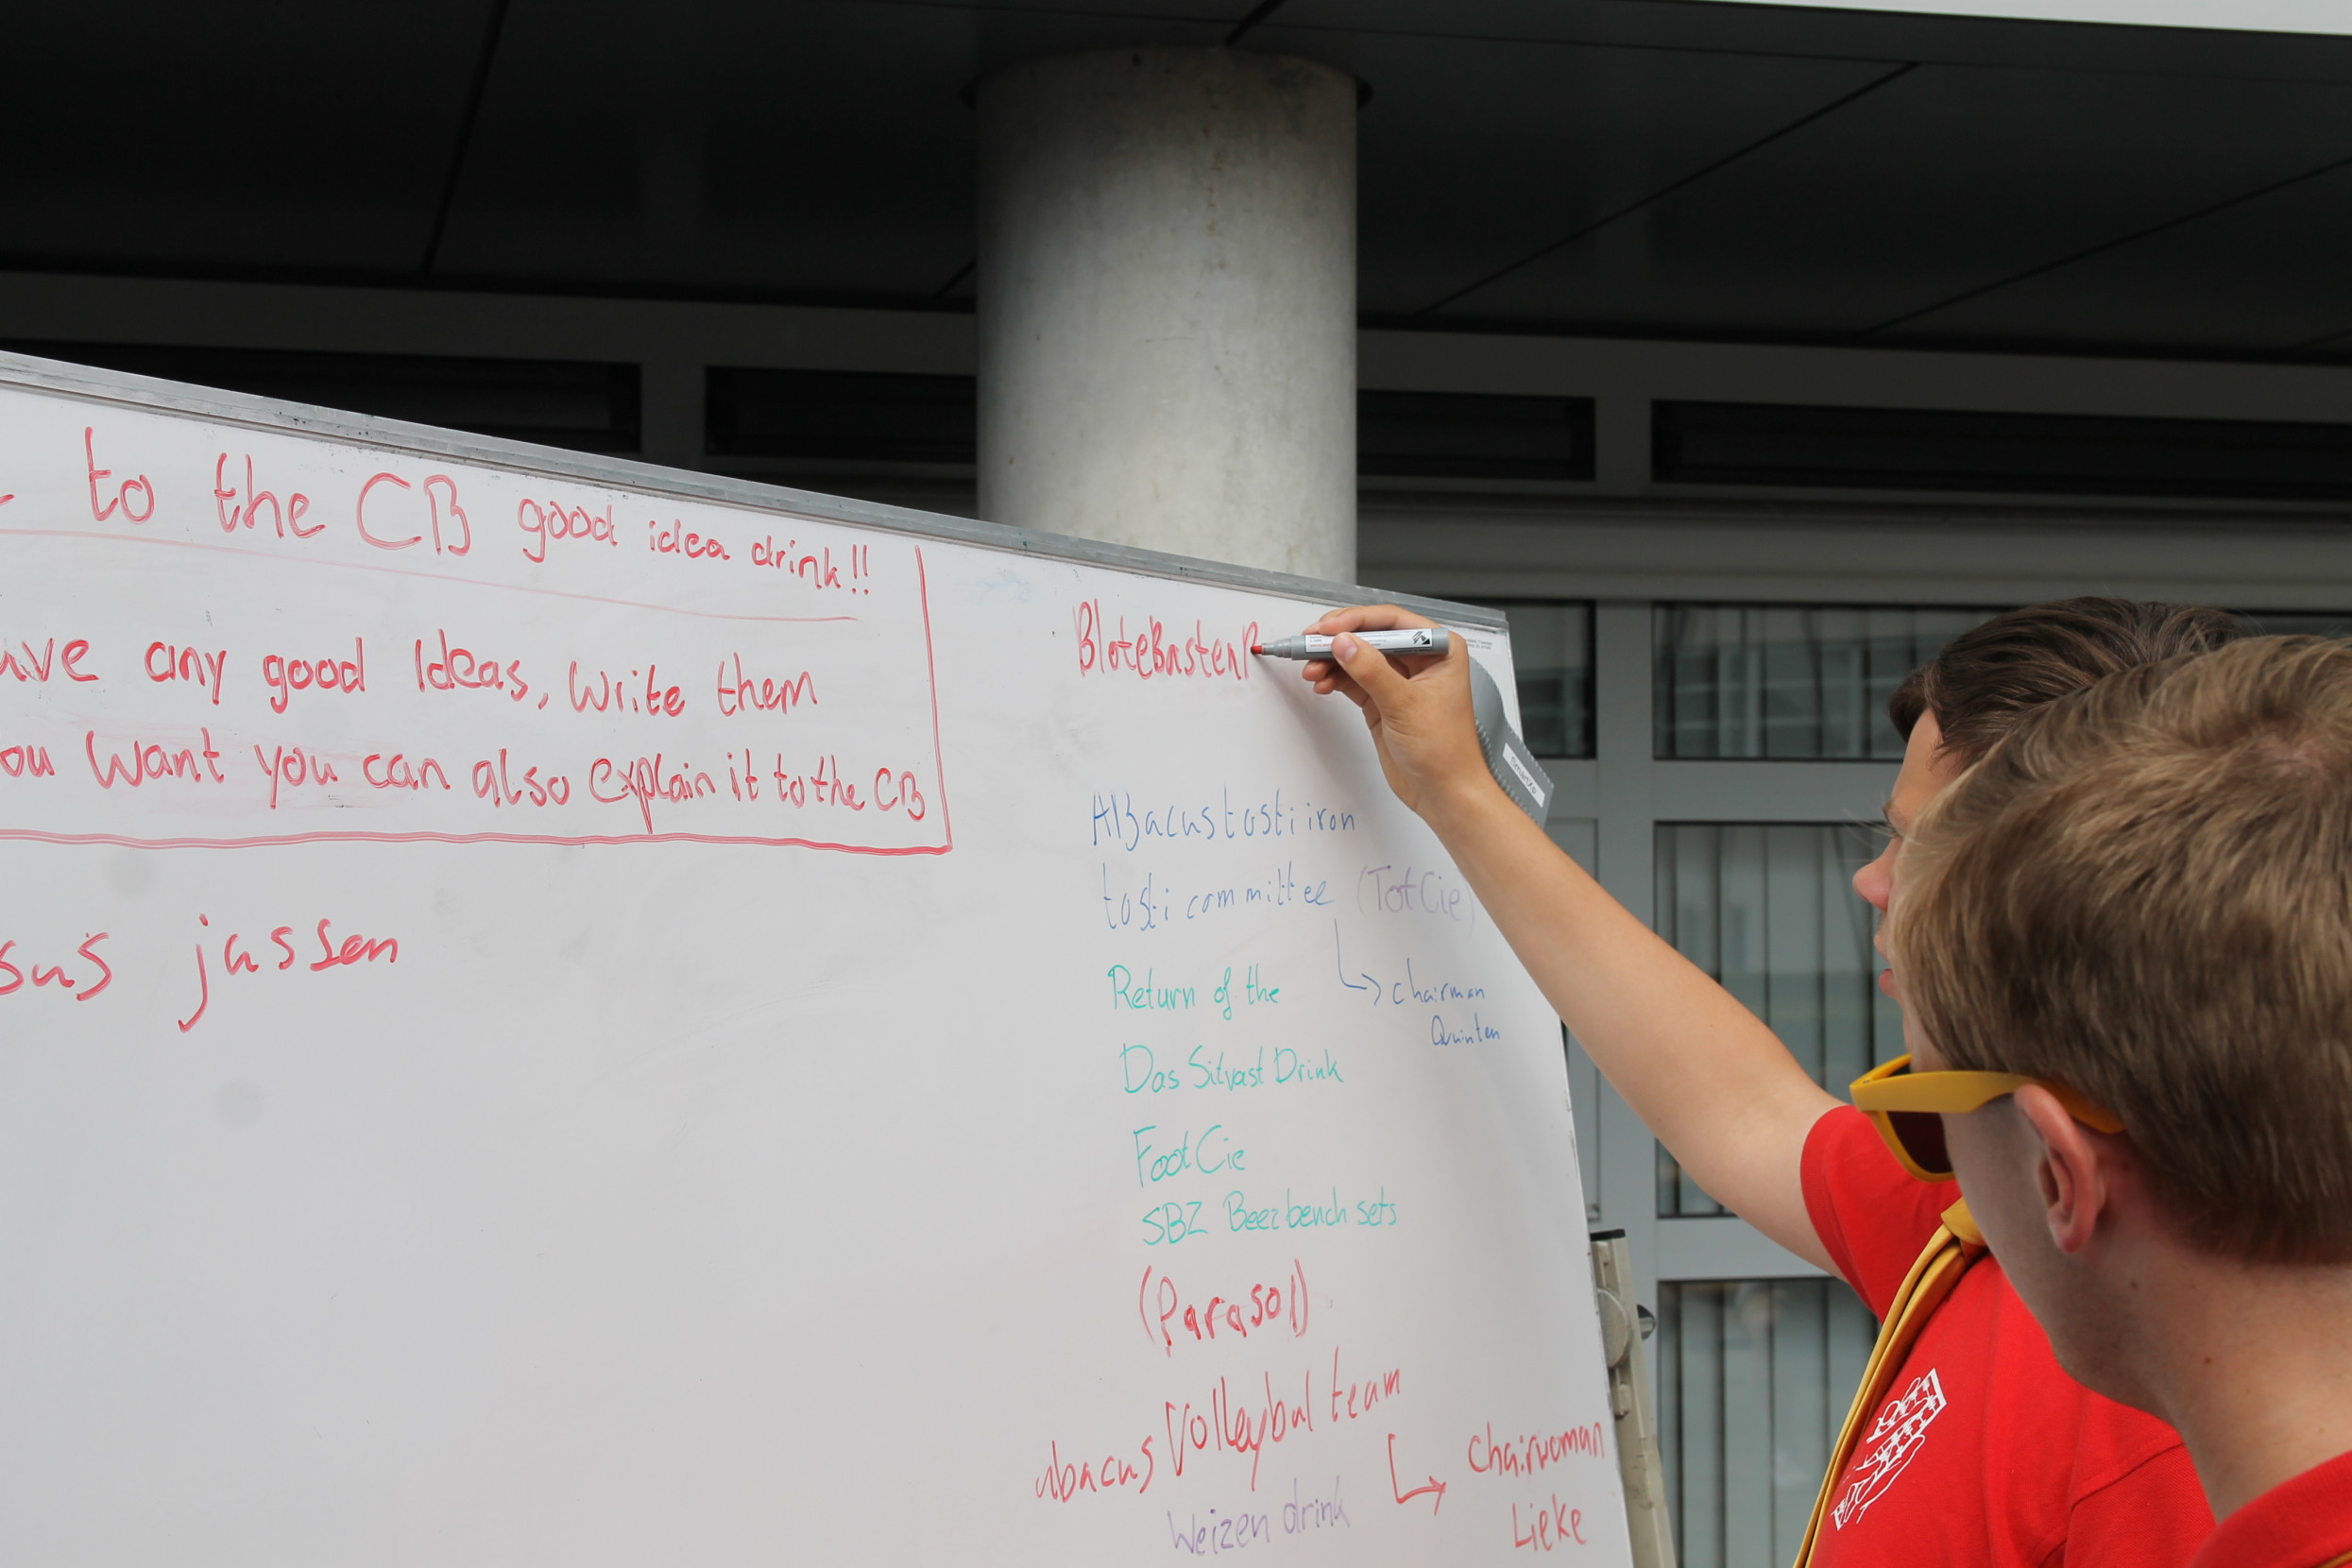 to the CB good idea drink!!
ave any good Ideas, write them
ou want you can also explain it to the CB
sus jassen
BloteBastenB
Abacus tosti iron
tosti committee (TotCie)
chairman
Quinten
Return of the
Das Sitvast Drink
FootCie
SBZ Beerbench sets
(Parasol)
abacus Volleybal team
chairwoman
Lieke
Weizen drink